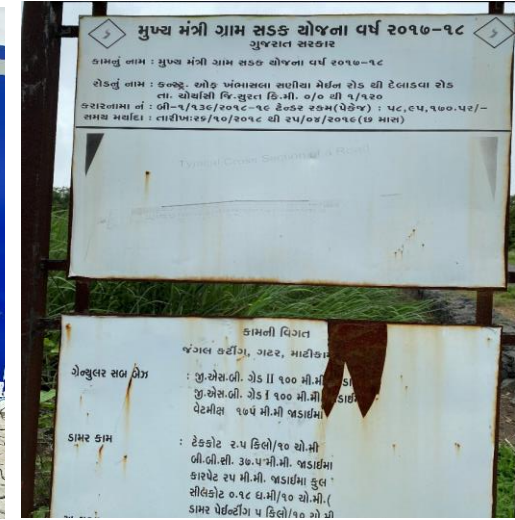 મુખ્ય મંત્રી ગ્રામ સડક યોજના વર્ષ ૨૦૧૭-૧૮
ગુજરાત સરકાર
કામનું નામ : મુખ્ય મંત્રી ગ્રામ સડક યોજના વર્ષ ૨૦૧૭-૧૮
રોડનું નામ : કન્સ્ટ્ર. ઓફ ખંભાસલા સણીયા મેઈન રોડ થી દેલાડવા રોડ
તા. ચોર્યાસી જિ.સુરત કિ.મી. ૦/૦ થી ૧/૧૨૦
કરારનામા નં : બી-૧/૧૩૯/૨૦૧૮-૧૯ ટેન્ડર રકમ(પેકેજ) : ૫૮,૯૫,૧૭૦.૫૨/-
સમય મર્યાદા : તારીખ:૨૬/૧૦/૨૦૧૮ થી ૨૫/૦૪/૨૦૧૯(છ માસ)
કામની વિગત
જંગલ કટીંગ, ગટર, માટીકામ
ગ્રેન્યુલર સબ બેઝ : જી.એસ.બી. ગ્રેડ II ૧૦૦ મી.મી
જી.એસ.બી. ગ્રેડ I ૧૦૦ મી.મી.
વેટમીક્ષ ૧૭૫ મી.મી જાડાઈમાં
ડામર કામ : ટેકકોટ ૨.૫ કિલો/૧૦ ચો.મી
બી.બી.સી. ૩૭.૫ મી.મી. જાડાઈમા
કારપેટ ૨૫ મી.મી. જાડાઈમા કુલ
સીલકોટ ૦.૧૮ ઘ.મી/૧૦ ચો.મી.(
ડામર પેઈન્ટીંગ ૫ કિલો/૧૦ ચો.મી